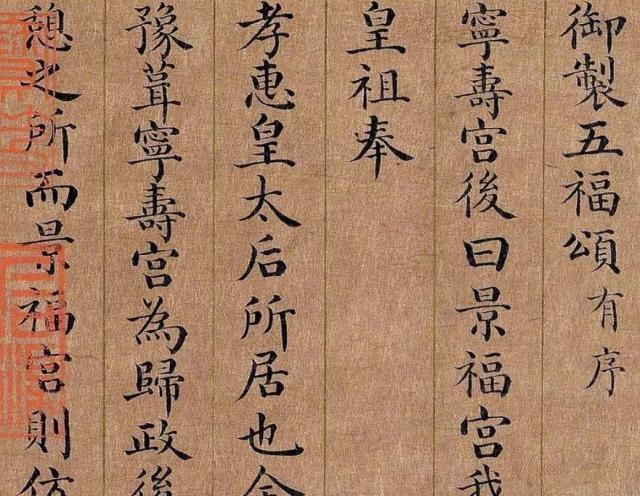 御製五福頌有序
寧壽宮後曰景福宮我
皇祖奉
孝惠皇太后所居也今
豫葺寧壽宮為歸政後
憩之所而景福宮則仿